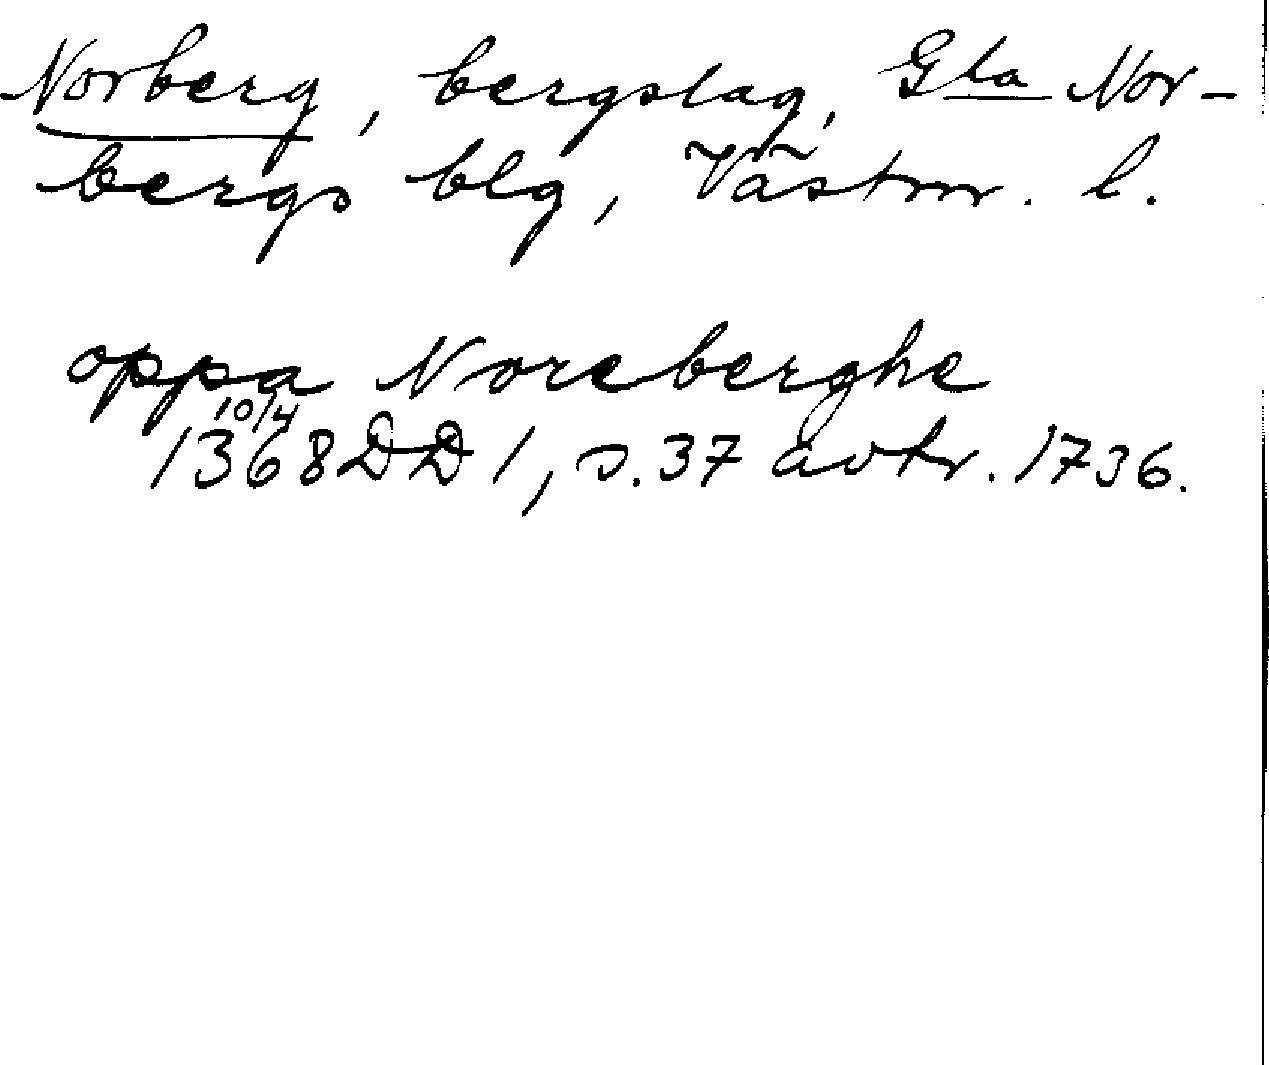 Norberg, bergslag, Gla Nor-
bergs blg, Västm. l.
oppa Noreberghe
10/4
1368 DD 1, s. 37 avtr. 1736.